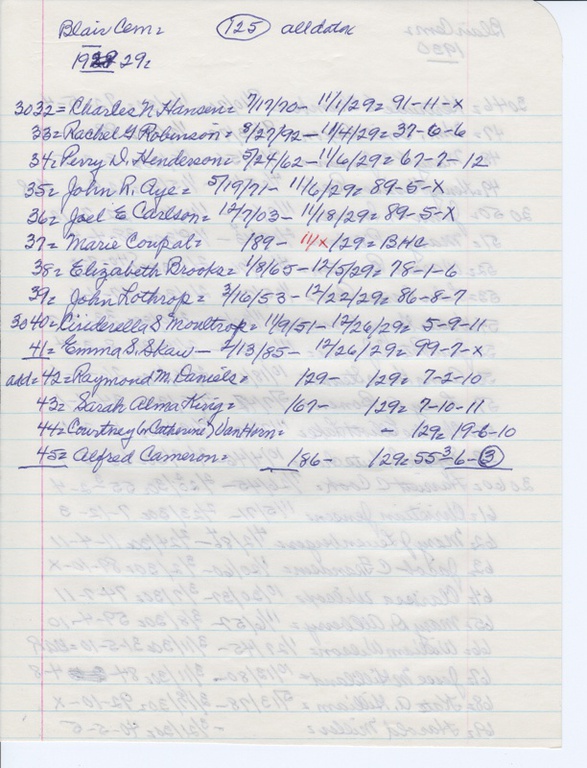 Blair Cem= 125 all data
1929=
3032= Charles N Hansen= 7/17/70- 11/1/29= 91-11-X
33= Rachel G Robinson= 8/27/92- 11/4/29= 37-6-6
34= Perry D. Henderson= 5/24/62- 11/6/29= 67-7-12
35= John R. Aye= 5/19/71- 11/6/29= 89-5-X
36= Joel E Carlson= 12/7/03- 11/18/29= 89-5-X
37= Marie Coupal= 189- 11/X/29= BHC
38= Elizabeth Brooks= 1/8/65- 12/5/29= 78-1-6
39= John Lothrop= 3/16/53- 12/22/29= 86-8-7
3040= Cinderella S Moultrop= 11/9/51- 12/26/29= 5-9-11
41= Emma S. Skaw- 2/13/85- 12/26/29= 99-7-X
add= 42= Raymond M. Daniels= 129- 129= 7-2-10
43= Sarah Alma King= 167- 129= 7-10-11
44= Courtney (or Catherine) VanHorn= - 129= 19-6-10
45= Alfred Cameron= 186- 129= 55 3-6-3